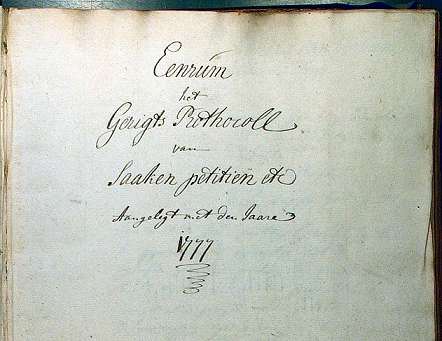 Eenrúm
het
Gerigts Prothocoll
van
Saaken petitien etc
Aangelegt met den Jaare
1777